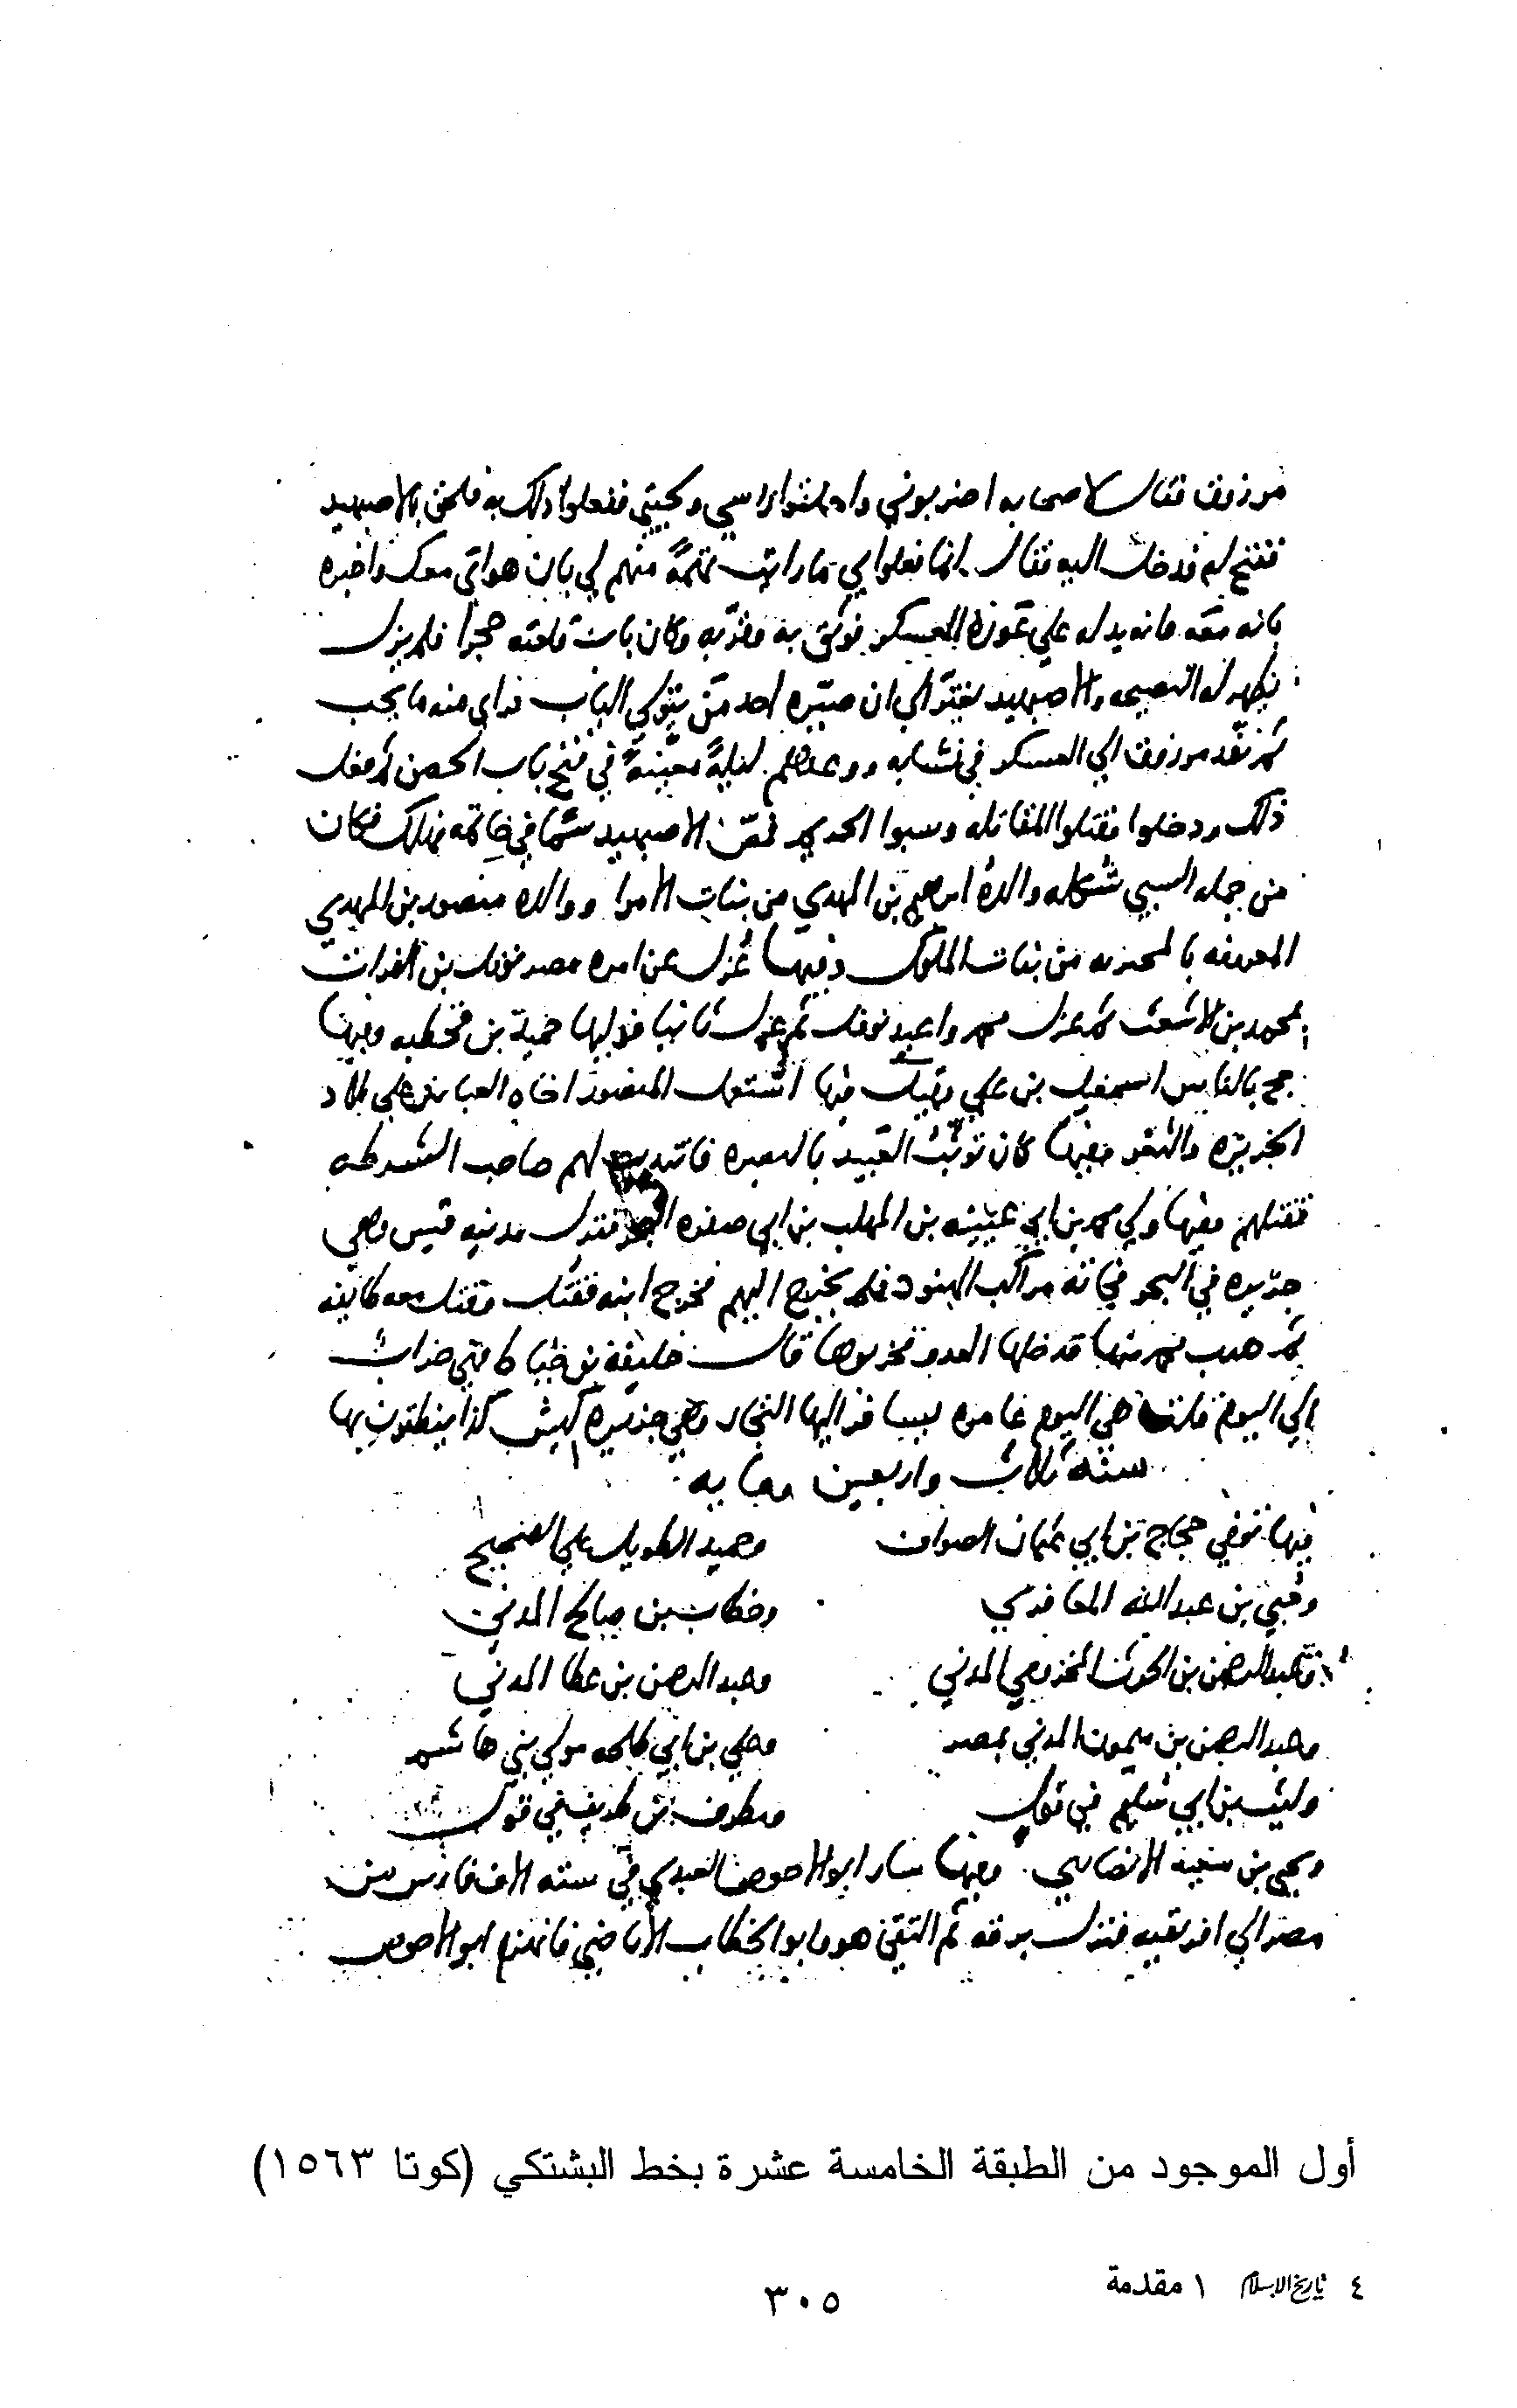 مرزوق فقال لاصحابه اضربوني واحلقوا راسي ولحيتي ففعلوا ذلك به فلحق بالاصبهبذ
ففتح له فدخل اليه فقال انما فعلوا بي ما رايت تهمة منهم لي بان هواي معك واخبره
بانه معه وانه يدله على عورة العسكر فوثق به وقربه وكان باب قلعته حجرا فلم يزل
يظهر له النصيحه والاصبهبذ يغتر الى ان صيره احد من يتولى الباب فراى منه ما يحب
ثم نفذ مرزوق الى العسكر في نشابه ووعدهم ليلة معينة في فتح باب الحصن ثم فعل
ذلك ودخلوا فقتلوا المقاتله وسبوا الحريم فمص الاصبهبذ سما في خاتمه فهلك فكان
من جمله السبي شكله والدة ابرهيم بن المهدي من بنات الامرا ووالده منصور بن المهدي
المعروفه بالبحتريه من بنات الملوك وفيها عزل عن امره مصر نوفل بن الفرات
بمحمد بن الاشعث ثم عزل محمد واعيد نوفل ثم عزل ثانيا فوليها حميد بن قحطبه وفيها
حج بالناس اسمعيل بن علي وقيل فيها استعمل المنصور اخاه العباس على بلاد
الجزيره والثغر وفيها كان توثب العبيد بالبصره فانتدب لهم صاحب الشرطه
فقتلهم وفيها ولي محمد بن ابي عيينه بن المهلب بن ابي صفره البحر فنزل مدينه قيس وهي
جزيره في البحر فجاته مراكب الهنود فلم يخرج اليهم فخرج ابنه فقتل وقتل معه طايفه
ثم هرب محمد منها فدخلها العدو فخربوها قال خليفة بن خياط فهي خراب
الى اليوم قلت هي اليوم عامره يسافر اليها التجار وهي جزيره كيش كذا ينطقون بها
سنه ثلاث واربعين ومايه
فيها توفي حجاج بن ابي عثمان الصواف وحميد الطويل على الصحيح
وحيي بن عبد الله المعافري وخطاب بن صالح المدني
وعبد الرحمن بن الحرث المخزومي المدني وعبد الرحمن بن عطا المدني
وعبد الرحمن بن ميمون المدني بمصر وعلي بن ابي طلحه مولى بني هاشم
وليث بن ابي سليم في قول ومطرف بن طريف في قول
ويحيى بن سعيد الانصاري وفيها سار ابو الاحوص العبدي في سته الاف فارس من
مصر الى افريقيه فنزل برقه ثم التقى هو وابو الخطاب الاباضي فانهزم ابو الاحوص
أول الموجود من الطبقة الخامسة عشرة بخط البشتكي (كوتا ١٥٦٣)
٤ تاريخ الإسلام ١ مقدمة
٣٠٥